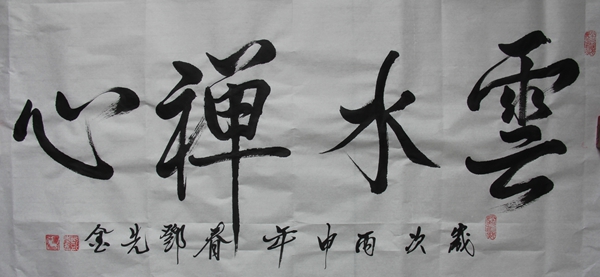 雲水禅心
歲次丙申年春鄧先金